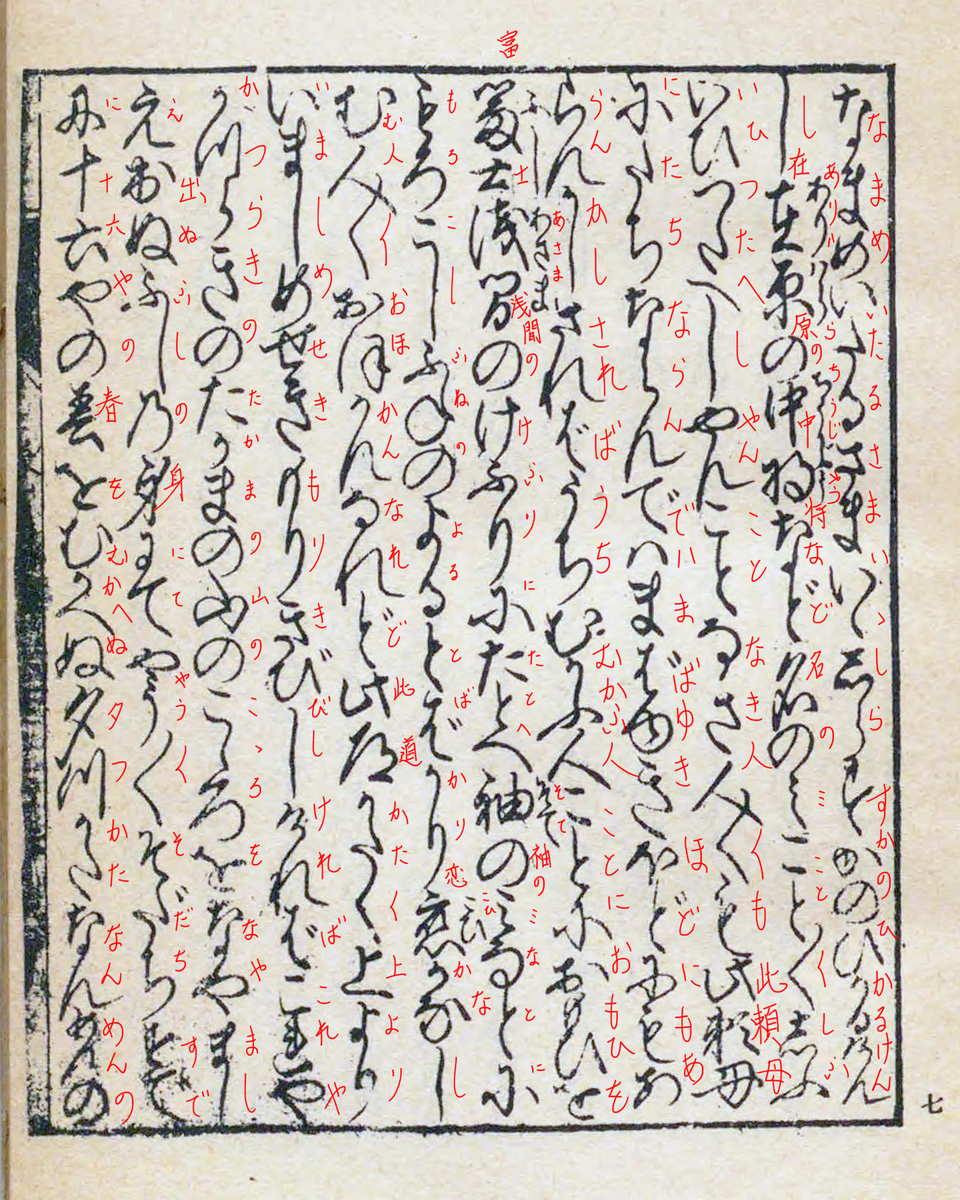 なまめいたるさまいゝしらすかのひかるけん
し在原の中将など名のミこと〱しふ
ありハらのちうじやう
いひつたへしやんことなき人〱も此頼母
にたちならんでハまばゆきほどにもあ
らんかしさればうちむかふ人ことにおもひを
富士浅間のけふりにたとへ袖のミなとに
ふじあさま
そで
もろこしぶねのよるとばかり恋かなし
こひ
む人〱おほかんなれど此道かたく上より
いましめせきもりきびしければこれや
かつらきのたかまの山のこゝろをなやまし
え出ぬふしの身にてやう〱そだちすで
に十六やの春をむかへぬ夕つかたなんめんの
七